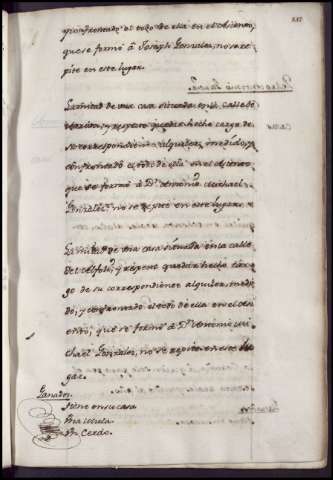 y confrontado el todo de ella en el Asiento,
que se formó à Joseph Gonzales, no se re-
pite en este lugar.
La mitad de una casa situada en la calle de
y respecto quedar hecho cargo de
su correspondiente alquiler, medido, y
confrontado el todo de ella en el Asiento
que se formó à Dn. Antonio Michael
Gonzales, no se repite en este lugar.
La mitad de otra casa situada en la calle
del y respecto quedar hecho car-
go de su correspondiente alquiler, medi-
do, y confrontado el todo de ella en el Asi-
ento, que se formó à Dn. Antonio Mi-
chael Gonzales, no se repite en este lu-
gar.
Ganados
tiene en su casa
Una Mula
Un Cerdo